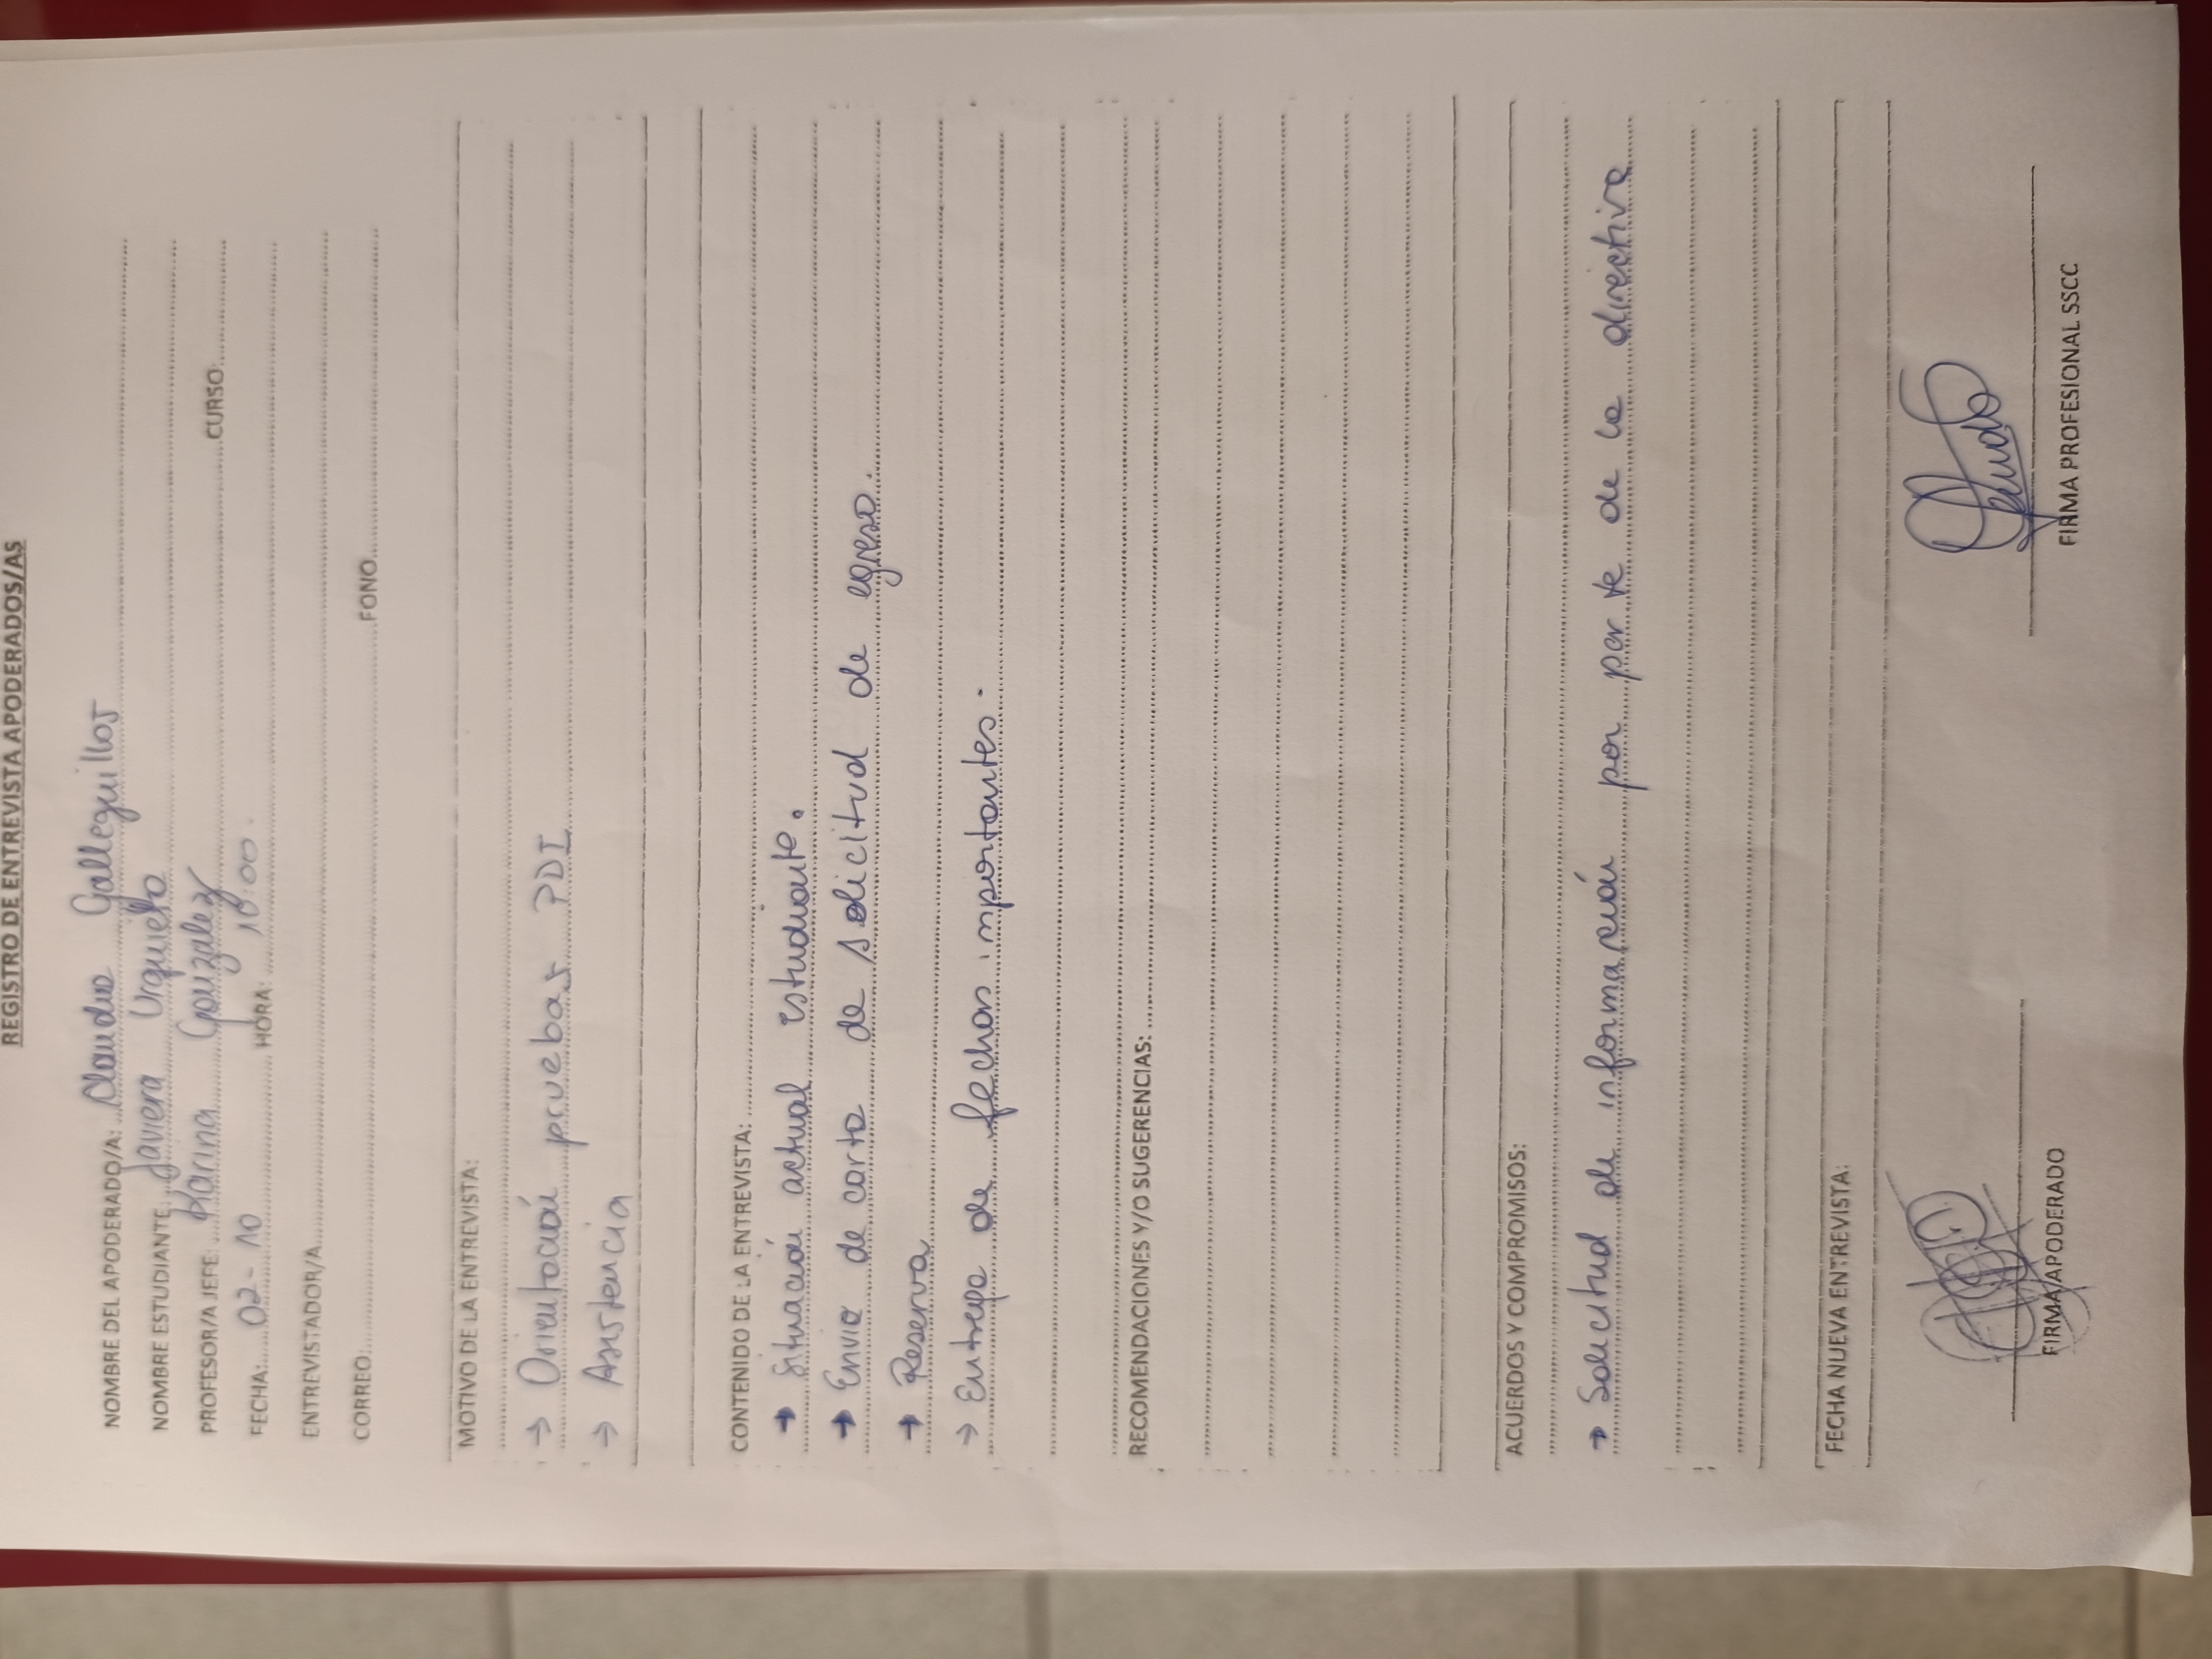 REGISTRO DE ENTREVISTA APODERADOS/AS
NOMBRE DEL APODERADO/A: Claudio Galleguillos
NOMBRE ESTUDIANTE Javiera Urquieta
PROFESOR/A JEFE: Karina González CURSO:
FECHA: 02-10 HORA: 10:00.
ENTREVISTADOR/A
CORREO: FONO
MOTIVO DE LA ENTREVISTA:
→ Orientación pruebas PDI
→ Asistencia
CONTENIDO DE LA ENTREVISTA:
→ Situación actual estudiante.
→ Envio de carta de solicitud de egreso.
→ Reserva
→ Entrega de fechas importantes.
RECOMENDACIONES Y/O SUGERENCIAS:
ACUERDOS Y COMPROMISOS:
→ Solicitud de información por parte de la directiva
FECHA NUEVA ENTREVISTA:
FIRMA APODERADO FIRMA PROFESIONAL SSCC